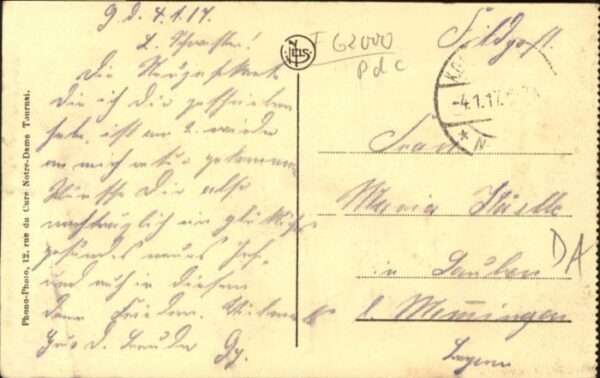 g. d. 4.1.17.
L. Schwester!
Die Neujahrskarte
die ich Dir geschrieben
habe, ist am 2. wieder
an mich retur gekommen
Wünsche Dir also
nachträglich ein glückliches
gesundes neues Jahr
und auch in diesem
dann Frieden.
Gruß d. Bruder
Phono-Photo, 12, rue du Cure Notre-Dame Tournai.
NELS
T 62000
pdc
Feldpost.
-4.1.17
* N
Frau
Maria
in Lauben
b. Memmingen
Bayern
DA